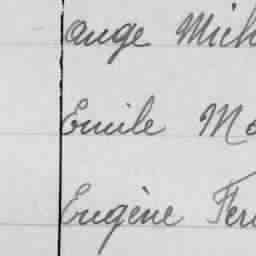 ange Mich
Emile Mo
Eugène Fer